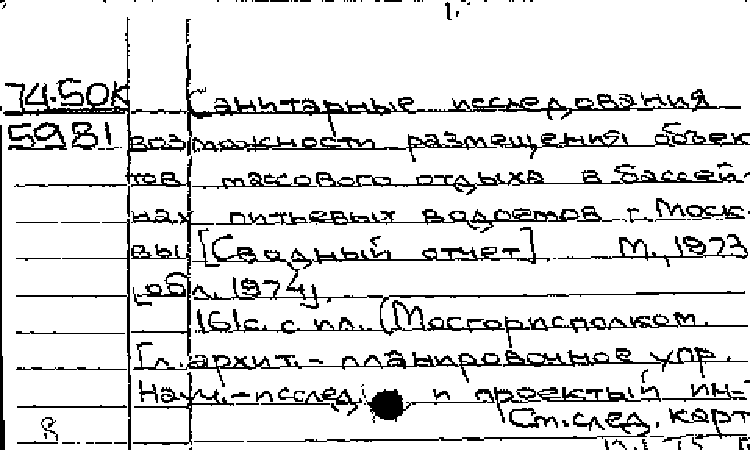 74.50К Санитарные исследования
5981 возможности размещения объек-
тов массового отдыха в бассей-
нах питьевых водоемов г. Моск-
вы [Сводный отчет] М., 1973
[обл. 1974].
161с. с ил. (Мосгорисполком.
Гл. архит.-планировочное упр.
Науч.-исслед. и проектый ин-
См. след. карт